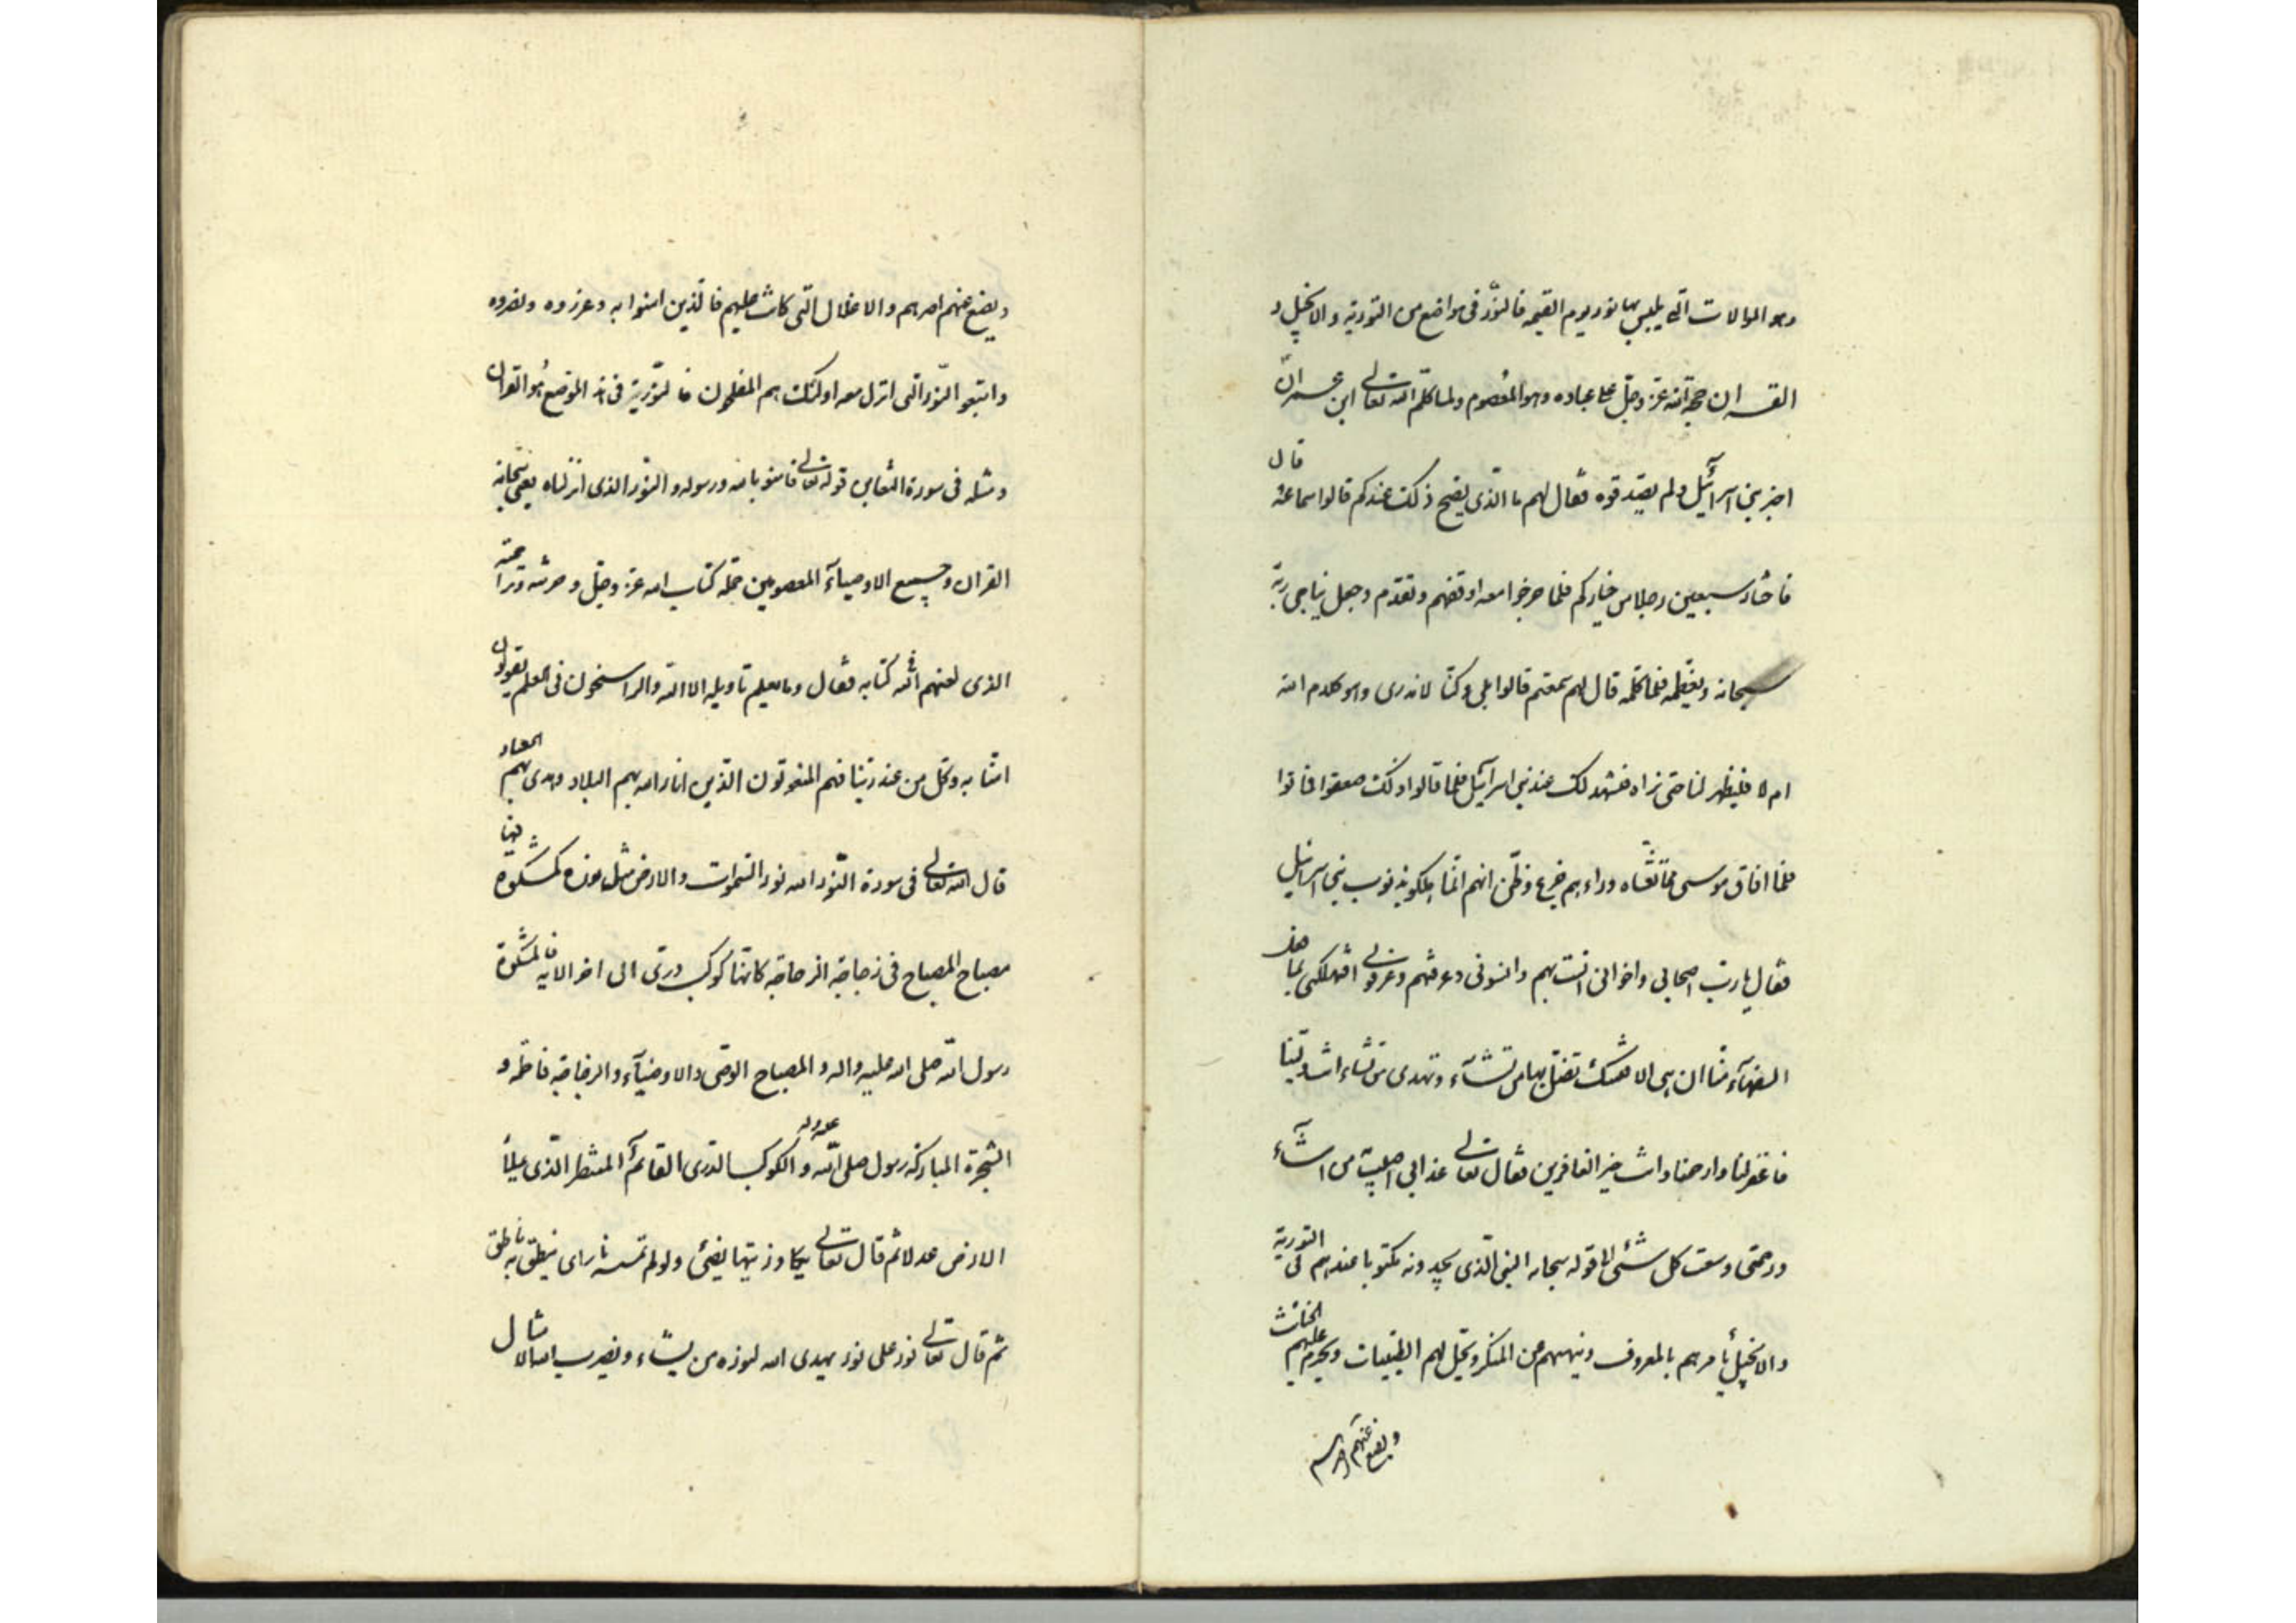 وهو الموالات التي يلبس بها نور يوم القيمه فالنور فى مواضع من التورية والانجيل و
القران حجة الله عز وجل على عباده وهو المعصوم ولما كلم الله تعالى ابن عمران
اخبر بنى اسرائيل ولم يصدقوه فقال لهم ما الذى يصح ذلك عندكم قالوا سماعه قال
فاختار سبعين رجلا من خياركم فلما خرجوا معه اوقفهم وتقدم وجعل يناجى ربه
سبحانه ويعظمه فلما كلمه قال لهم سمعتم قالوا بلى وكنا لا ندرى وهو كلام الله
ام لا فليظهر لنا حتى نراه فنشهد لك عند بنى اسرائيل فلما قالوا ذلك صعقوا فماتوا
فلما افاق موسى مما تغشاه وراءهم جزع وظن انهم انما اهلكو بذنوب بنى اسرائيل
فقال يا رب اصحابى واخوانى انست بهم وانسونى وعرفتهم وعرفونى افتهلكنى بما فعل
السفهاء منا ان هى الا فتنتك تضل بها من تشاء وتهدى من تشاء انت ولينا
فاغفر لنا وارحمنا وانت خير الغافرين فقال تعالى عذابى اصيب به من اشآء
ورحمتى وسعت كل شئ الى قوله سبحانه النبى الذى يجدونه مكتوبا عندهم فى التورية
والانجيل يأمرهم بالمعروف وينهيهم عن المنكر ويحل لهم الطيبات ويحرم عليهم الخبائث
ويضع عنهم اصرهم
ويضع عنهم اصرهم والاغلال التى كانت عليهم فالذين امنوا به وعزروه ونصروه
واتبعو النور الذى انزل معه اولئك هم المفلحون فالنور فى هذا الموضع هو القران
ومثله فى سورة التغابن قوله تعالى فامنو بالله ورسوله والنور الذى انزلناه يعنى سبحانه
القران وجميع الاوصيآء المعصومين حملة كتاب الله عز وجل وخزنته وتراجمته
الذى نعتهم الله فى كتابه فقال وما يعلم تاويله الا الله والراسخون فى العلم يقولون
امنا به وكل من عند ربنا فهم المنعوتون الذين انار الله بهم البلاد وهدى بهم العباد
قال الله تعالى فى سورة النور الله نور السموات والارض مثل نوره كمشكوة فيها
مصباح المصباح فى زجاجة الزجاجة كانها كوكب درى الى اخر الايه فالمشكوة
رسول الله صلى الله عليه واله والمصباح الوصى والاوصيآء والزجاجة فاطمه و
الشجرة المباركة رسول صلى الله عليه واله والكوكب الدرى القائم المنتظر الذى يملأ
الارض عدلا ثم قال تعالى يكاد زيتها يضئ ولو لم تمسه نار اى ينطق به ناطق
ثم قال تعالى نور على نور يهدى الله لنوره من يشاء ويضرب الله الامثال